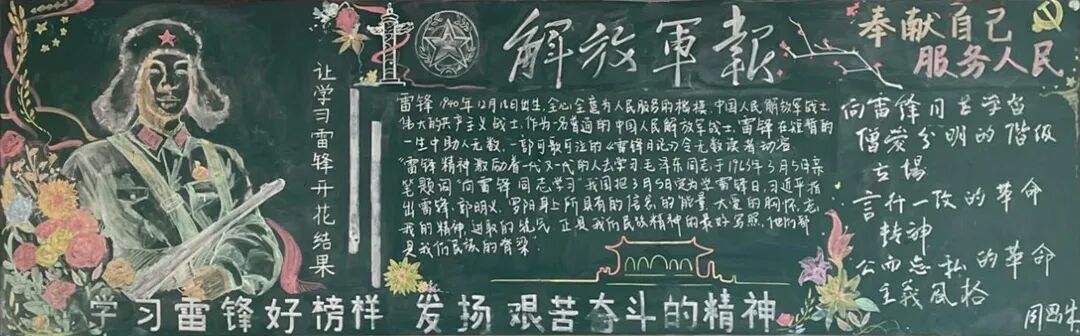 让学习雷锋开花结果
解放軍報
奉献自己
服务人民
雷锋1940年12月18日出生,全心全意为人民服务的楷模,中国人民解放军战士
伟大的共产主义战士,作为一名普通的中国人民解放军战士,雷锋在短暂的
一生中助人无数,一部可歌可泣的《雷锋日记》令无数读者动容
"雷锋精神激励着一代又一代的人去学习毛泽东同志于1963年3月5日亲
笔题词"向雷锋同志学习"我国把3月5日定为学雷锋日,习近平指
出雷锋,郭明义,罗阳身上所具有的信念的能量,大爱的胸怀,忘
我的精神,进取的锐气,正是我们民族精神的最好写照,他们都
是我们民族的脊梁"
向雷锋同志学習
憎爱分明的階级
立場
言行一致的革命
精神
公而忘私的革命
主義風格
学习雷锋好榜样 发扬艰苦奋斗的精神